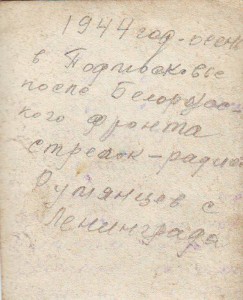 1944 год. осень
в Подмосковье
после Белорус-
кого фронта
стрелок-радист
Румянцев с
Ленинграда